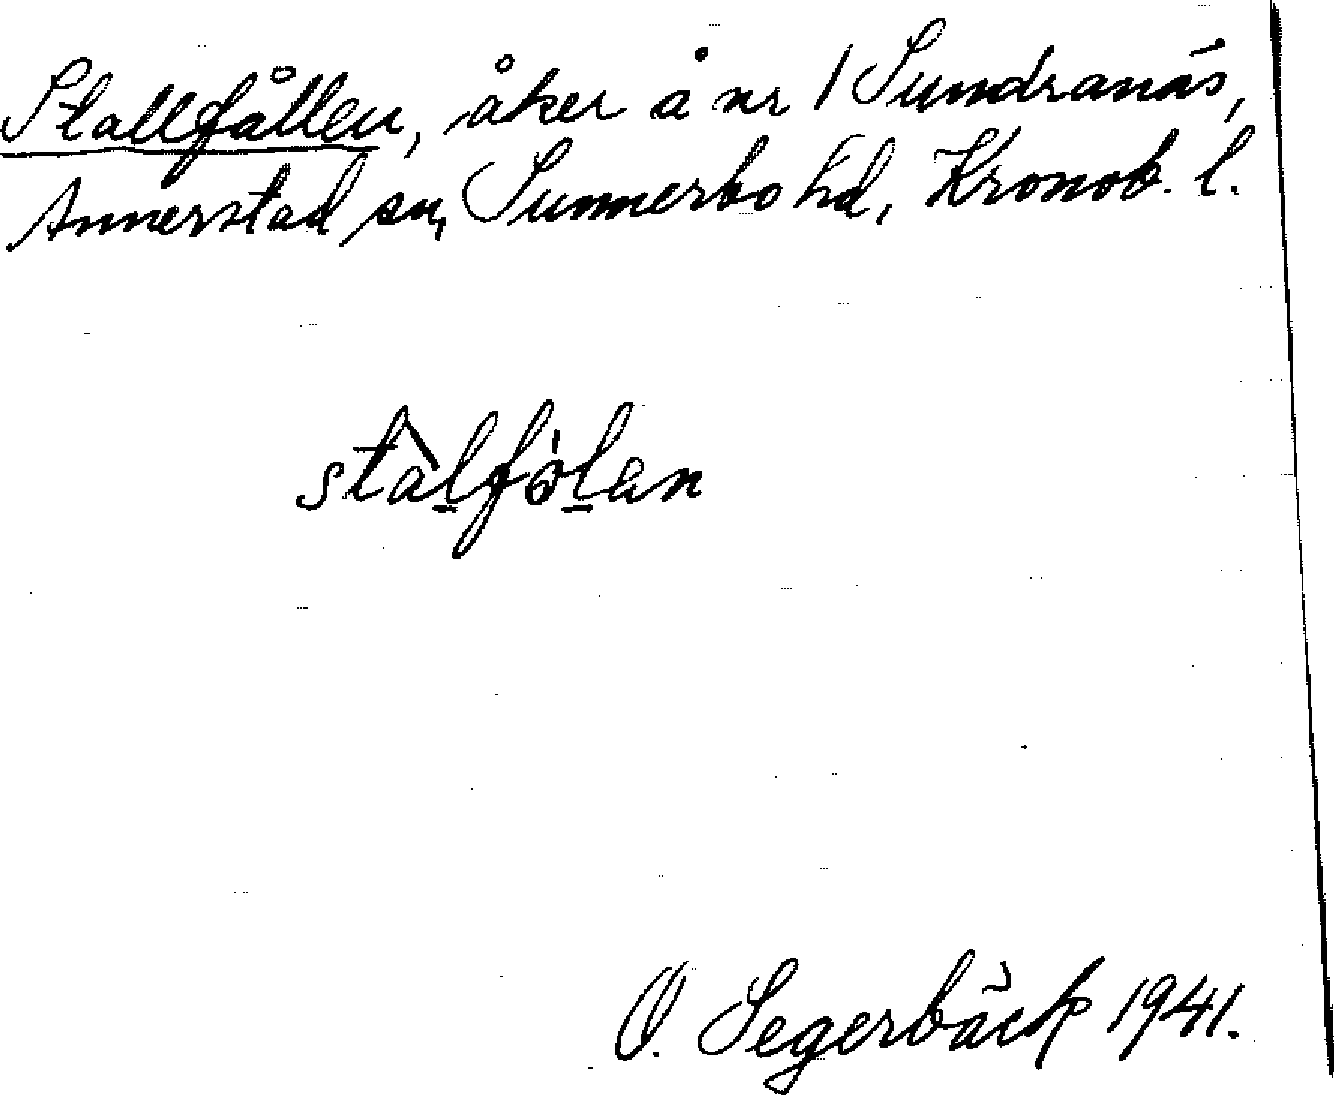 Stallfållen, åker å nr 1 Sundranäs,
Annerstad sn, Sunnerbo hd, Kronob. l.
stàl̲fól̲an
O. Segerbäck 1941.